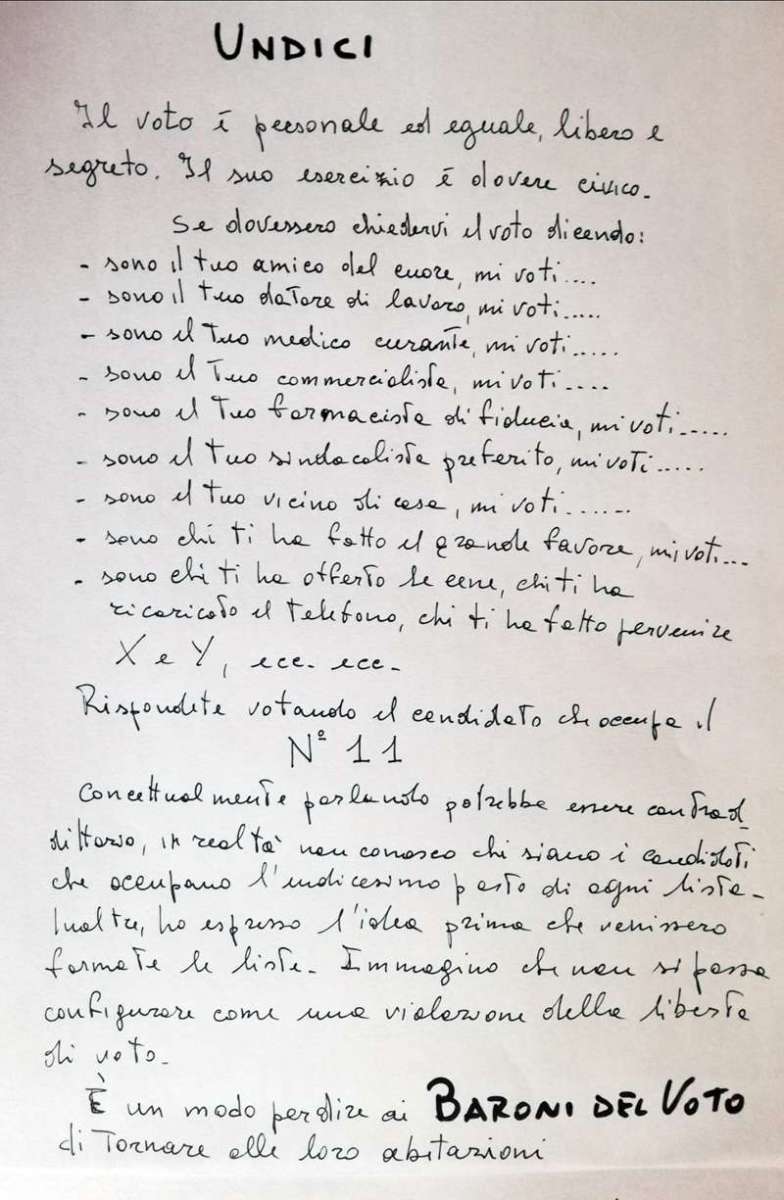 UNDICI
Il voto è personale ed eguale, libero e
segreto. Il suo esercizio è dovere civico.
Se dovessero chiedervi il voto dicendo:
- sono il tuo amico del cuore, mi voti.....
- sono il tuo datore di lavoro, mi voti.....
- sono il tuo medico curante, mi voti.....
- sono il tuo commercialista, mi voti....
- sono il tuo farmacista di fiducia, mi voti......
- sono il tuo sindacalista preferito, mi voti.....
- sono il tuo vicino di casa, mi voti.......
- sono chi ti ha fatto il grande favore, mi voti...
- sono chi ti ha offerto le cene, chi ti ha
ricaricato il telefono, chi ti ha fatto pervenire
X e Y, ecc. ecc.
Rispondete votando il candidato che occupa il
Nº 11
Concettualmente parlando potrebbe essere contrad_
dittorio, in realtà non conosco chi siano i candidati
che occupano l'undicesimo posto di ogni lista.
Inoltre, ho espresso l'idea prima che venissero
formate le liste. Immagino che non si possa
configurare come una violazione della libertà
di voto.
È un modo per dire ai BARONI DEL VOTO
di tornare alle loro abitazioni